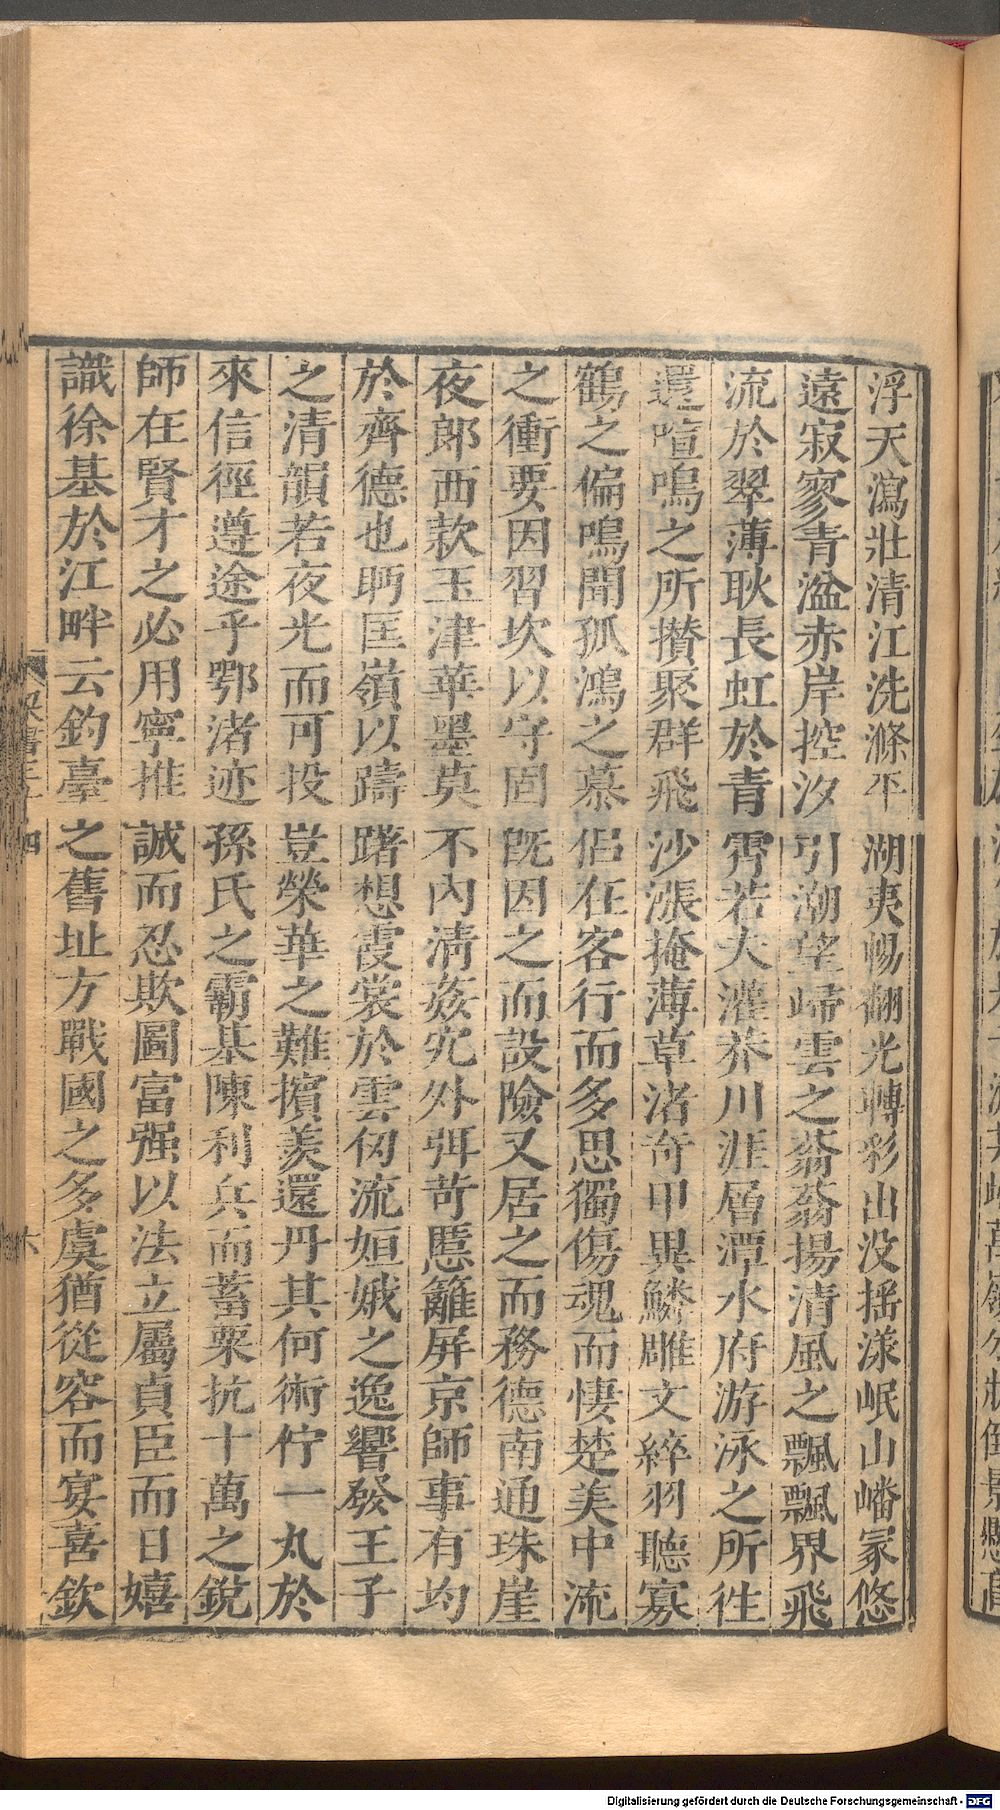 浮天瀉壯清江洗滌平湖夷暢翻光轉彩出没揺漾岷山嶓冢悠
遠寂寥青溢赤岸控汐引潮望歸雲之蓊蓊揚清風之飄飄界飛
流於翠薄耿長虹於青霄若夫灌莽川涯層潭水府游泳之所往
還喧鳴之所攢聚群飛沙漲掩薄草渚奇甲異鱗雕文綷羽聽寡
鶴之偏鳴聞孤鴻之慕侶在客行而多思獨傷魂而悽楚美中流
之衝要因習坎以守固旣因之而設險又居之而務德南通珠崖
夜郎西款玉津華墨莫不內清姦宄外弭苛慝籬屏京師事有均
於齊德也眄匡嶺以躊躇想霞裳於雲仞流姮娥之逸響發王子
之清韻若夜光而可投豈榮華之難擯羨還丹其何術佇一丸於
來信徑遵途乎鄂渚迹孫氏之霸基陳利兵而蓄粟抗十萬之銳
師在賢才之必用寧推誠而忍欺圖富强以法立屬貞臣而日嬉
識徐基於江畔云釣臺之舊址方戰國之多虞猶從容而宴喜欽
Digitalisierung gefördert durch die Deutsche Forschungsgemeinschaft - DFG